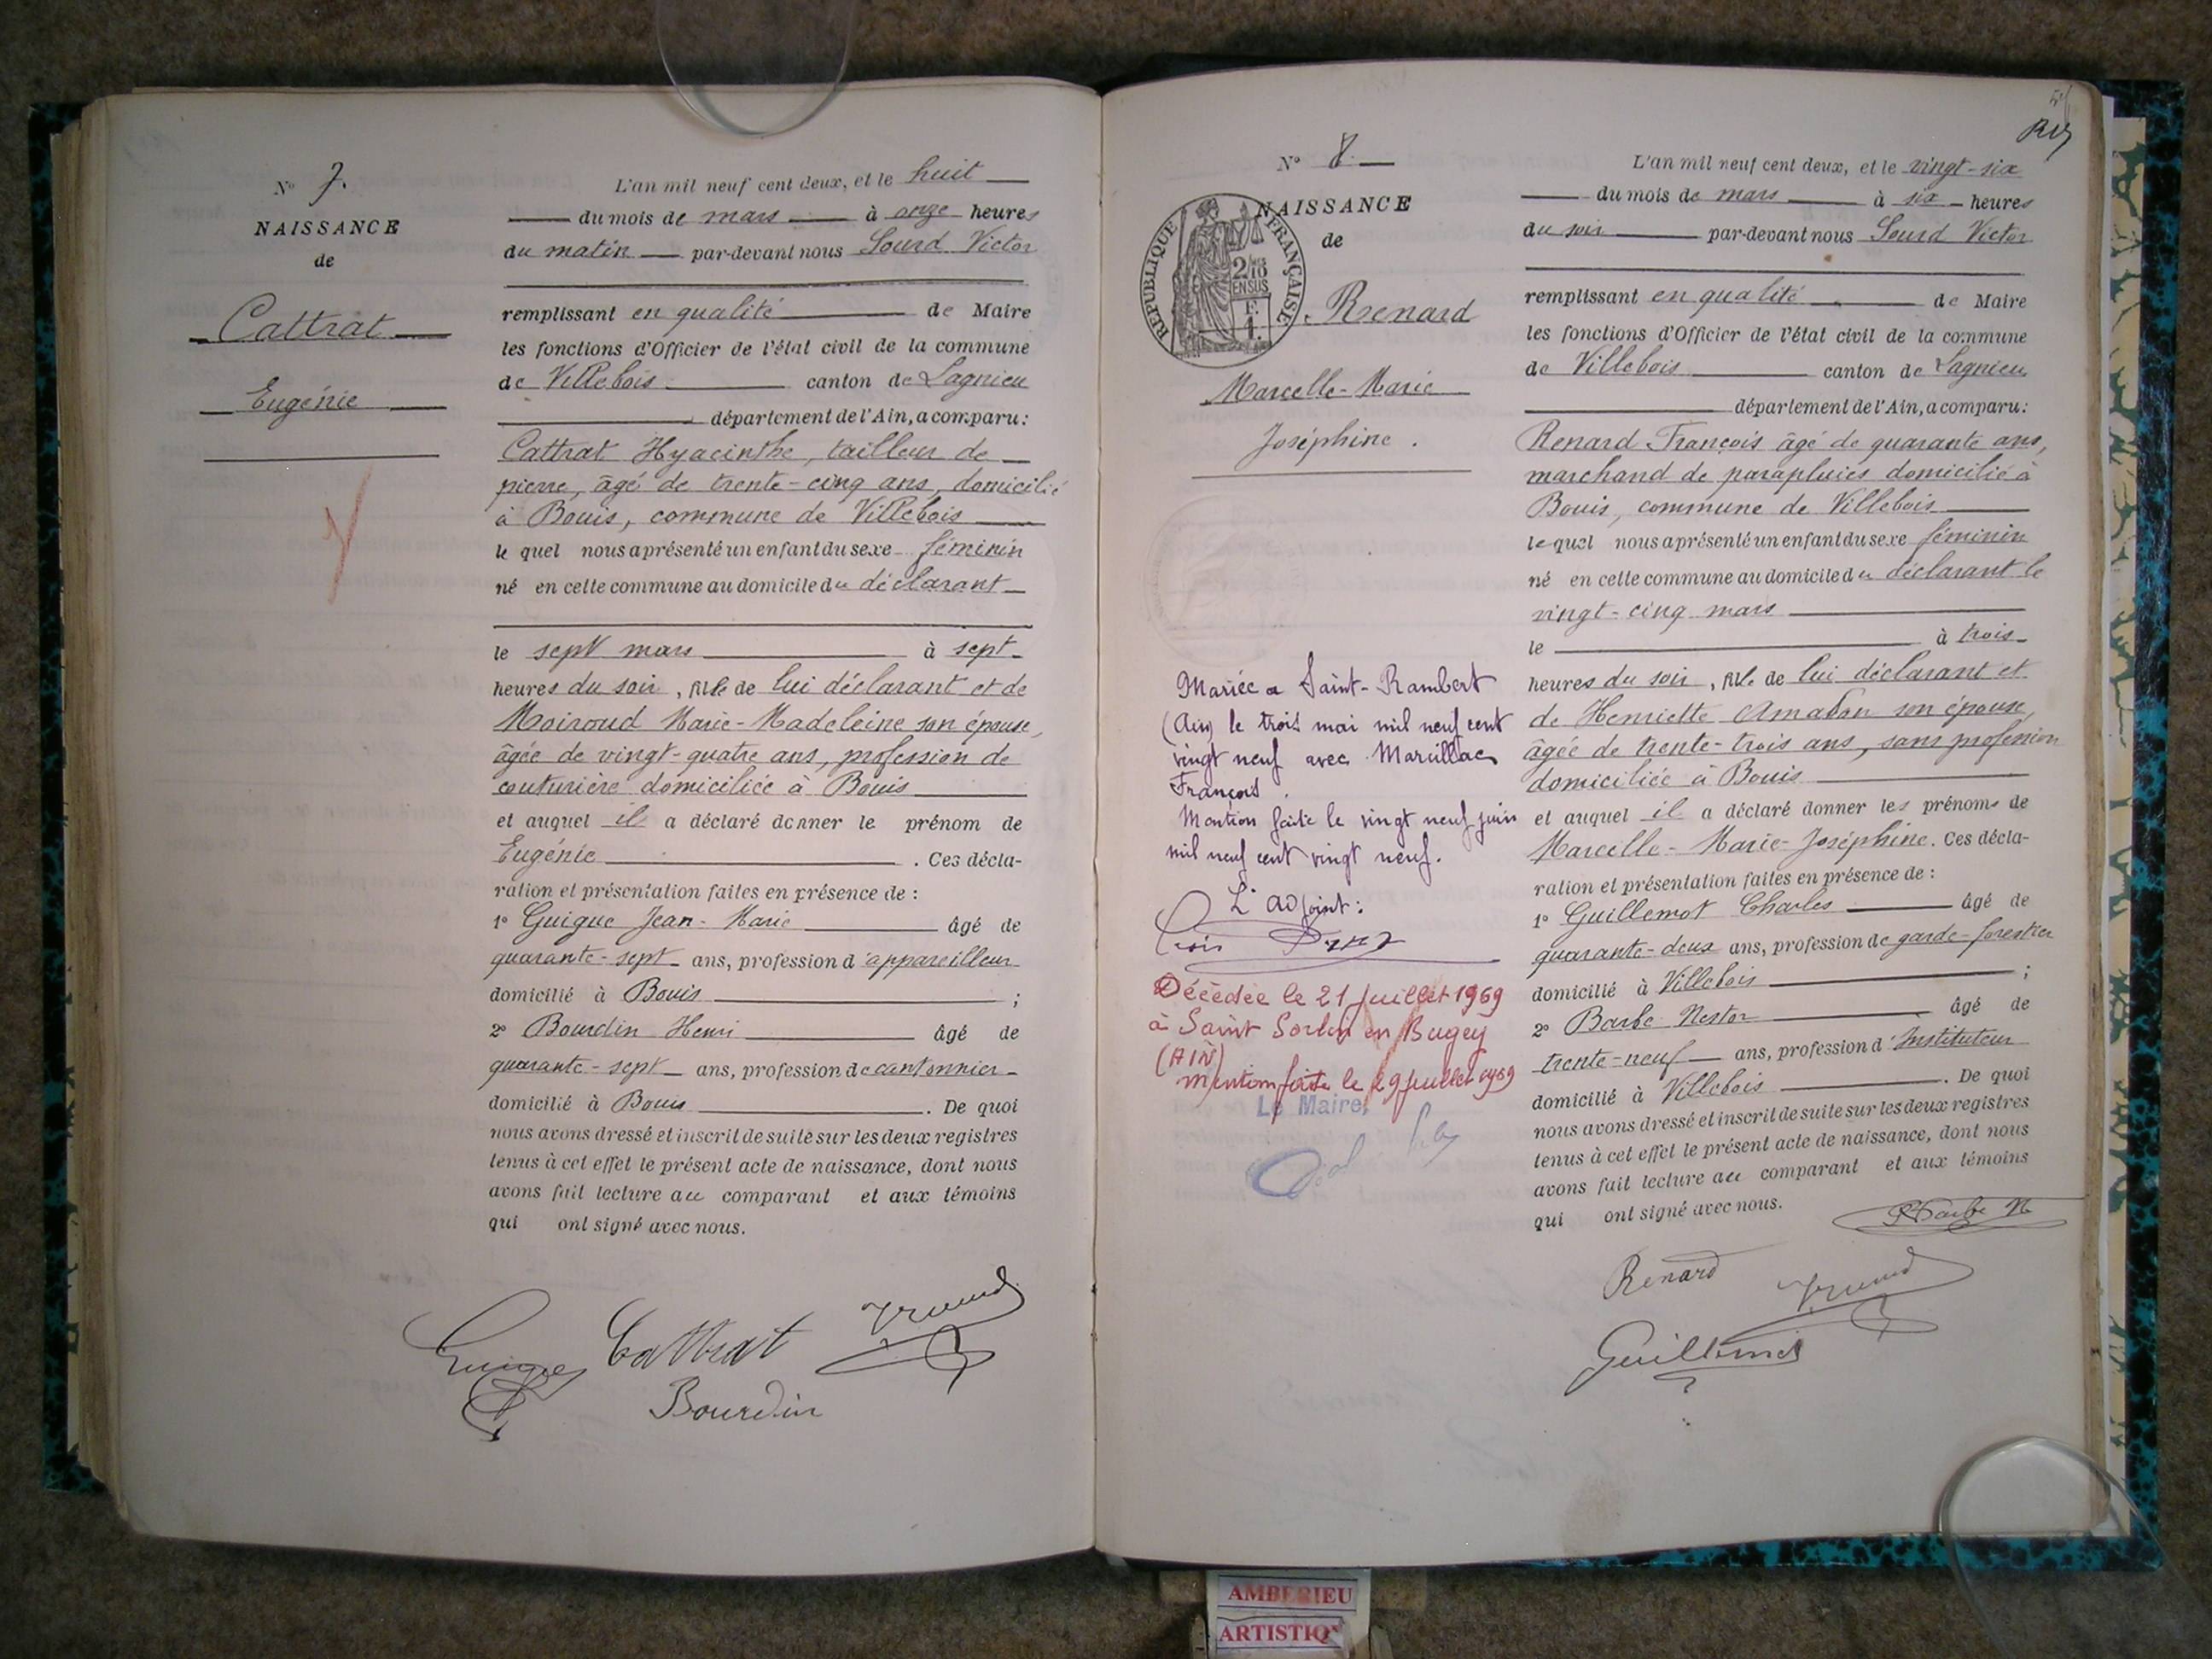 N° 7.
NAISSANCE
de
Cattrat
Eugénie
L'an mil neuf cent deux, et le huit
du mois de mars à onze heures
du matin par-devant nous Sourd Victor
remplissant en qualité de Maire
les fonctions d'Officier de l'état civil de la commune
de Villebois canton de Lagnieu
département de l'Ain, a comparu:
Cattrat Hyacinthe, tailleur de
pierre, âgé de trente-cinq ans, domicilié
à Bouis, commune de Villebois
le quel nous a présenté un enfant du sexe féminin
né en cette commune au domicile du déclarant
le sept mars à sept
heures du soir, fille de lui déclarant et de
Moiroud Marie-Madeleine son épouse,
âgée de vingt-quatre ans, profession de
couturière domiciliée à Bouis
et auquel il a déclaré donner le prénom de
Eugénie . Ces décla-
ration et présentation faites en présence de :
1° Guigue Jean-Marie âgé de
quarante-sept ans, profession d'appareilleur
domicilié à Bouis ;
2° Bourdin Henri âgé de
quarante-sept ans, profession de cantonnier
domicilié à Bouis . De quoi
nous avons dressé et inscrit de suite sur les deux registres
tenus à cet effet le présent acte de naissance, dont nous
avons fait lecture au comparant et aux témoins
qui ont signé avec nous.
Guigue Cattrat
Bourdin
N° 8.
NAISSANCE
de
REPUBLIQUE FRANÇAISE
2/10 EN SUS
F. 1.
Renard
Marcelle-Marie
Joséphine.
Mariée a Saint-Rambert
(Ain) le trois mai mil neuf cent
vingt neuf avec Marcillac
François.
Mention faite le vingt neuf juin
mil neuf cent vingt neuf.
L'adjoint:
Décédée le 21 juillet 1969
à Saint Sorlin en Bugey
(AIN)
mention faite le 29 juillet 1969
Le Maire,
L'an mil neuf cent deux, et le vingt-six
du mois de mars à six heures
du soir par-devant nous Sourd Victor
remplissant en qualité de Maire
les fonctions d'Officier de l'état civil de la commune
de Villebois canton de Lagnieu
département de l'Ain, a comparu:
Renard François âgé de quarante ans,
marchand de parapluies domicilié à
Bouis, commune de Villebois
le quel nous a présenté un enfant du sexe féminin
né en cette commune au domicile du déclarant le
vingt-cinq mars
le à trois
heures du soir, fille de lui déclarant et
de Henriette Amabon son épouse,
âgée de trente-trois ans, sans profession
domiciliée à Bouis
et auquel il a déclaré donner les prénoms de
Marcelle-Marie-Joséphine. Ces décla-
ration et présentation faites en présence de :
1° Guillemot Charles âgé de
quarante-deux ans, profession de garde-forestier
domicilié à Villebois ;
2° Barbe Nestor âgé de
trente-neuf ans, profession d'Instituteur
domicilié à Villebois . De quoi
nous avons dressé et inscrit de suite sur les deux registres
tenus à cet effet le présent acte de naissance, dont nous
avons fait lecture au comparant et aux témoins
qui ont signé avec nous.
Barbe N
Renard
Guillemot
AMBERIEU
ARTISTIQ